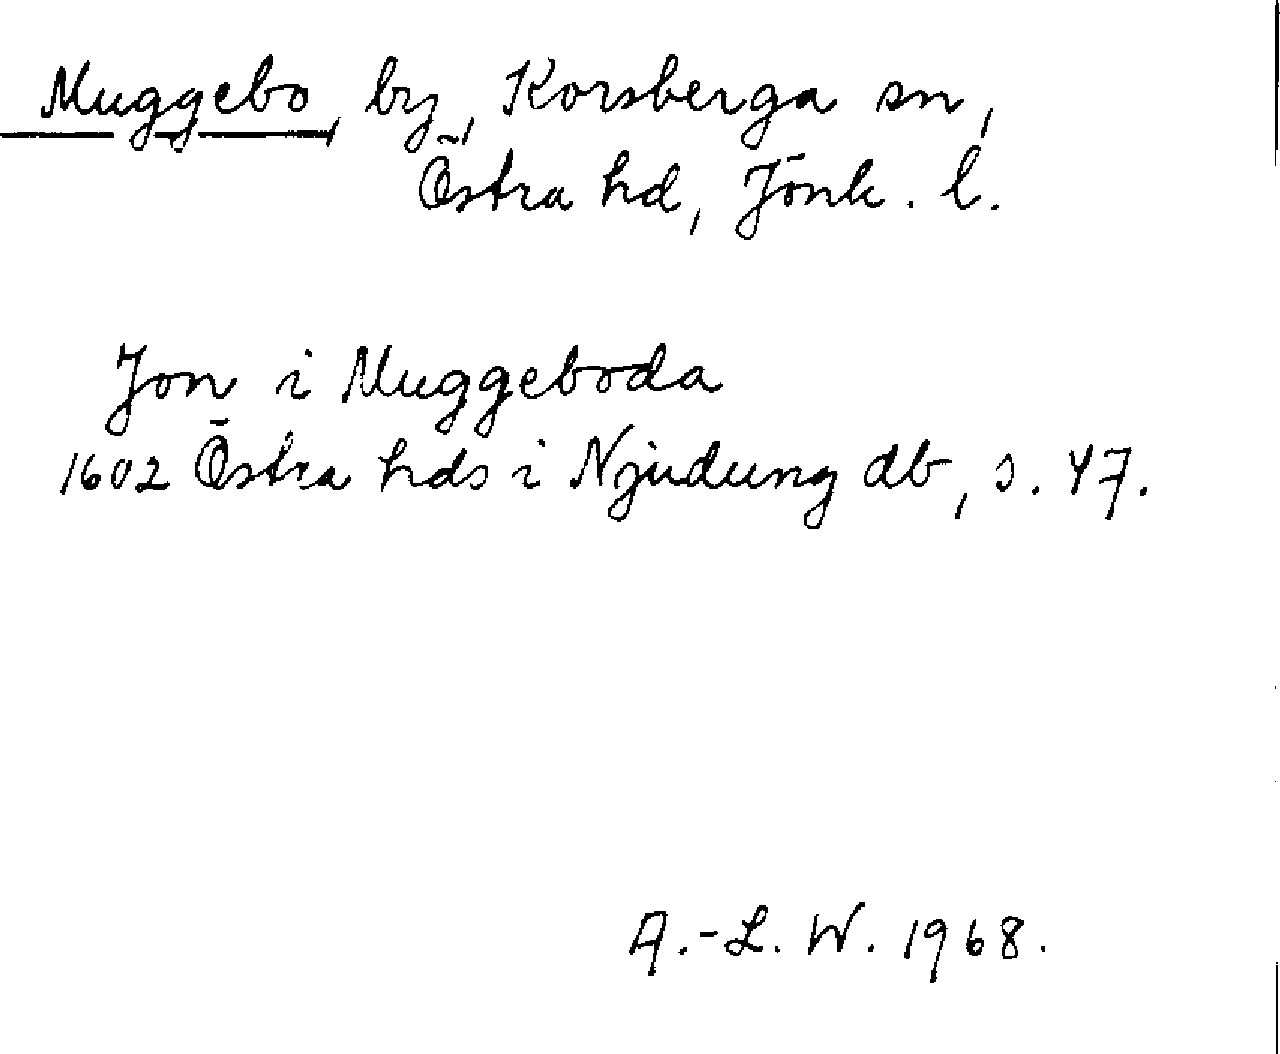 Muggebo, by, Korsberga sn,
Östra hd, Jönk. l.
Jon i Muggeboda
1602 Östra hds i Njudung db, s. 47.
A.-L. W. 1968.